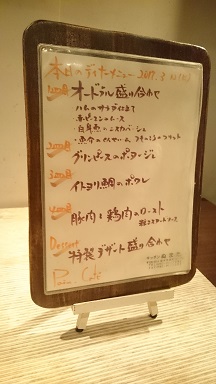 本日のディナーメニュー 2017.3.
オードブル盛り合わせ
ハムのサラダ仕立て
赤ピーマンのムース
白身魚のエスカベッシュ
2皿目 グリンピースのポタージュ
3皿目 イトヨリ鯛のポワレ
4皿目 豚肉と鶏肉のロースト
Dessert
特製デザート盛り合わせ
Pain, Café